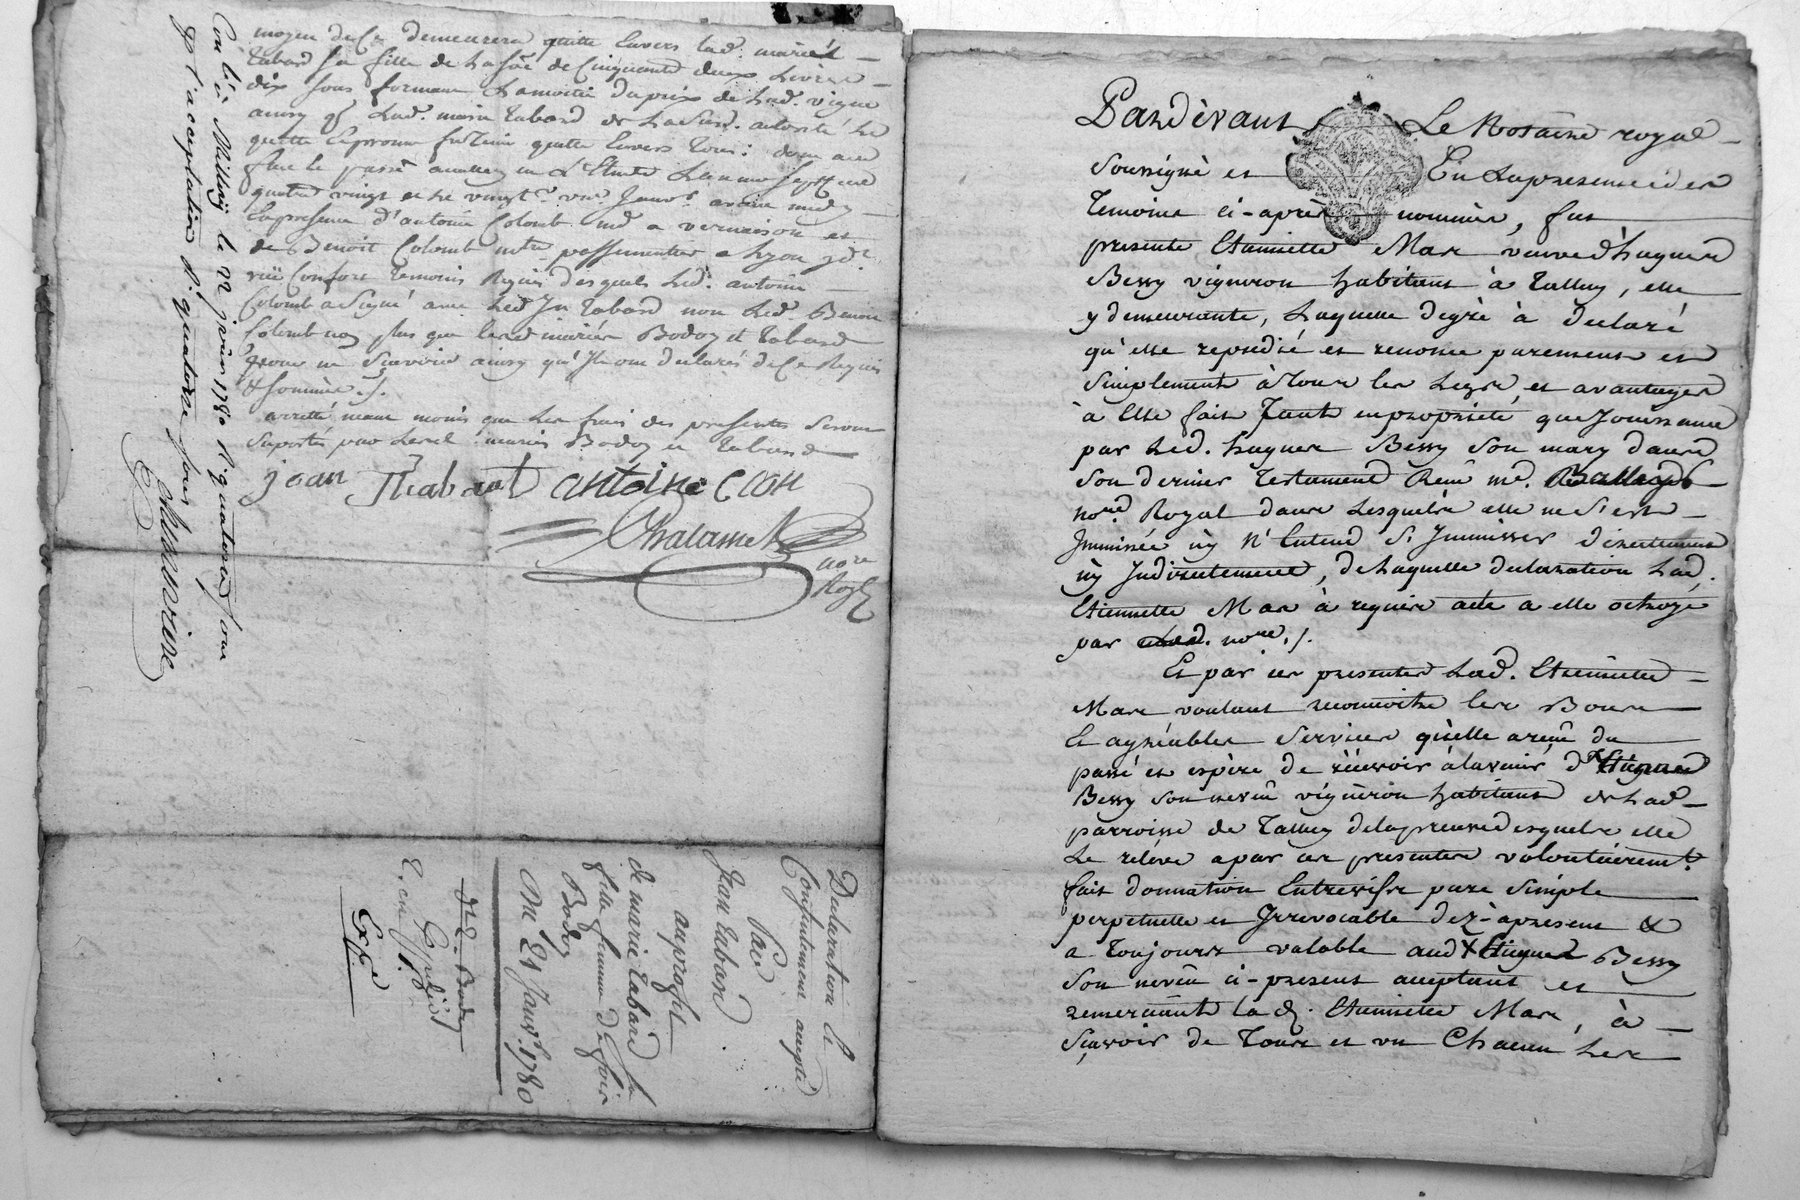 moyen de Ce demeurera quitte Envers lad. mariée
tabard sa fille de la sôe de Cinquante deux Livres
dix sous formant la moitié du prix de lad. vigne
ainsy q. Lad. marie tabard de La susd. autorité Le
quitte
fait et passé
quatre vingt et le vingt un Janvr. avant midy
En presence d'antoine Colomb md a vernaison et
de Benoit Colomb mtre passementier a Lyon
ruë Confort temoins Requis desquels Led. antoine
Colomb a signé avec Led. Jn tabard non Led. Benoit
Colomb non plus que lesd mariés Bodoy et tabard
pour ne sçavoir ainsy qu'Ils ont declarés de Ce Requis
& sommés ./.
arretté neant moins que Les frais des presentes seront
suportés par Lesd. mariés Bodoy et tabard
jean Thabard antoine Colon
Chalamel
nore
Royl
Con lé à Millery le 22 janvier 1780 R. quatorze sous
p. l'acceptation R. quatorze sous
Declaration Et
Consentement accepté
Par
Jean tabard
au proffit
de marie tabard sa
fille femme de
Bodoy
Du 21 Janvr. 1780
Bodoy
E. en
Exp.
Pardevant Le Notaire royal
soussigné et En la presence des
temoins ci-après nommés, fut
presente Etiennette Mar veuve d'hugues
Bessy vigneron habitant à talluy, elle
y demeurante, Laquelle degré à declaré
qu'elle repudie et renonce purement et
simplement à tous les Legs, et avantages
à Elle fait tant en proprieté que Jouissance
par Led. hugues Bessy son mary dans
son dernier testament Reçu me.
nore. Royal dans Lesquels elle ne s'est
Immiscée ny N'Entend s'Immisser directement
ny Indirectement, de Laquelle declaration Lad.
Etiennette Mar à requis acte a elle octroyé
par Led. nore. ./.
Et par ces presentes Lad. Etiennette
Mar voulant reconnoitre les Bons
Et agréables services qu'elle a reçû du
passé et espère de récevoir à l'avenir d'hugues
Bessy son neveû vigneron habitant de Lad
parroisse de talluy de la preuve desquels elle
Le rélève a par ces presentes volontairemt.
fait donnation Entrevifs pure simple
perpetuelle et Irrevocable dez-apresent &
a toujours valable aud hugues Bessy
son neveû ci-present acceptant et
remerciant la d. Etiennette Mar, à
sçavoir de tous et un Chacun Les